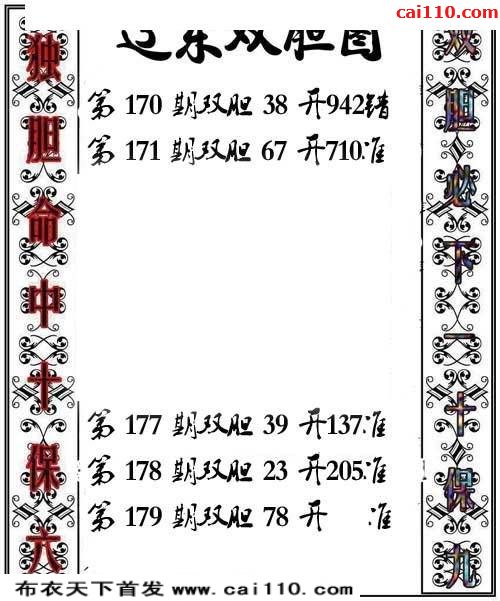 cai110.com
辽东双胆图
独胆命中十保六
双胆必下一十保九
第 170 期双胆 38 开942错
第 171 期双胆 67 开710准
第 177 期双胆 39 开137准
第 178 期双胆 23 开205准
第 179 期双胆 78 开 准
布衣天下首发 www.cai110.com